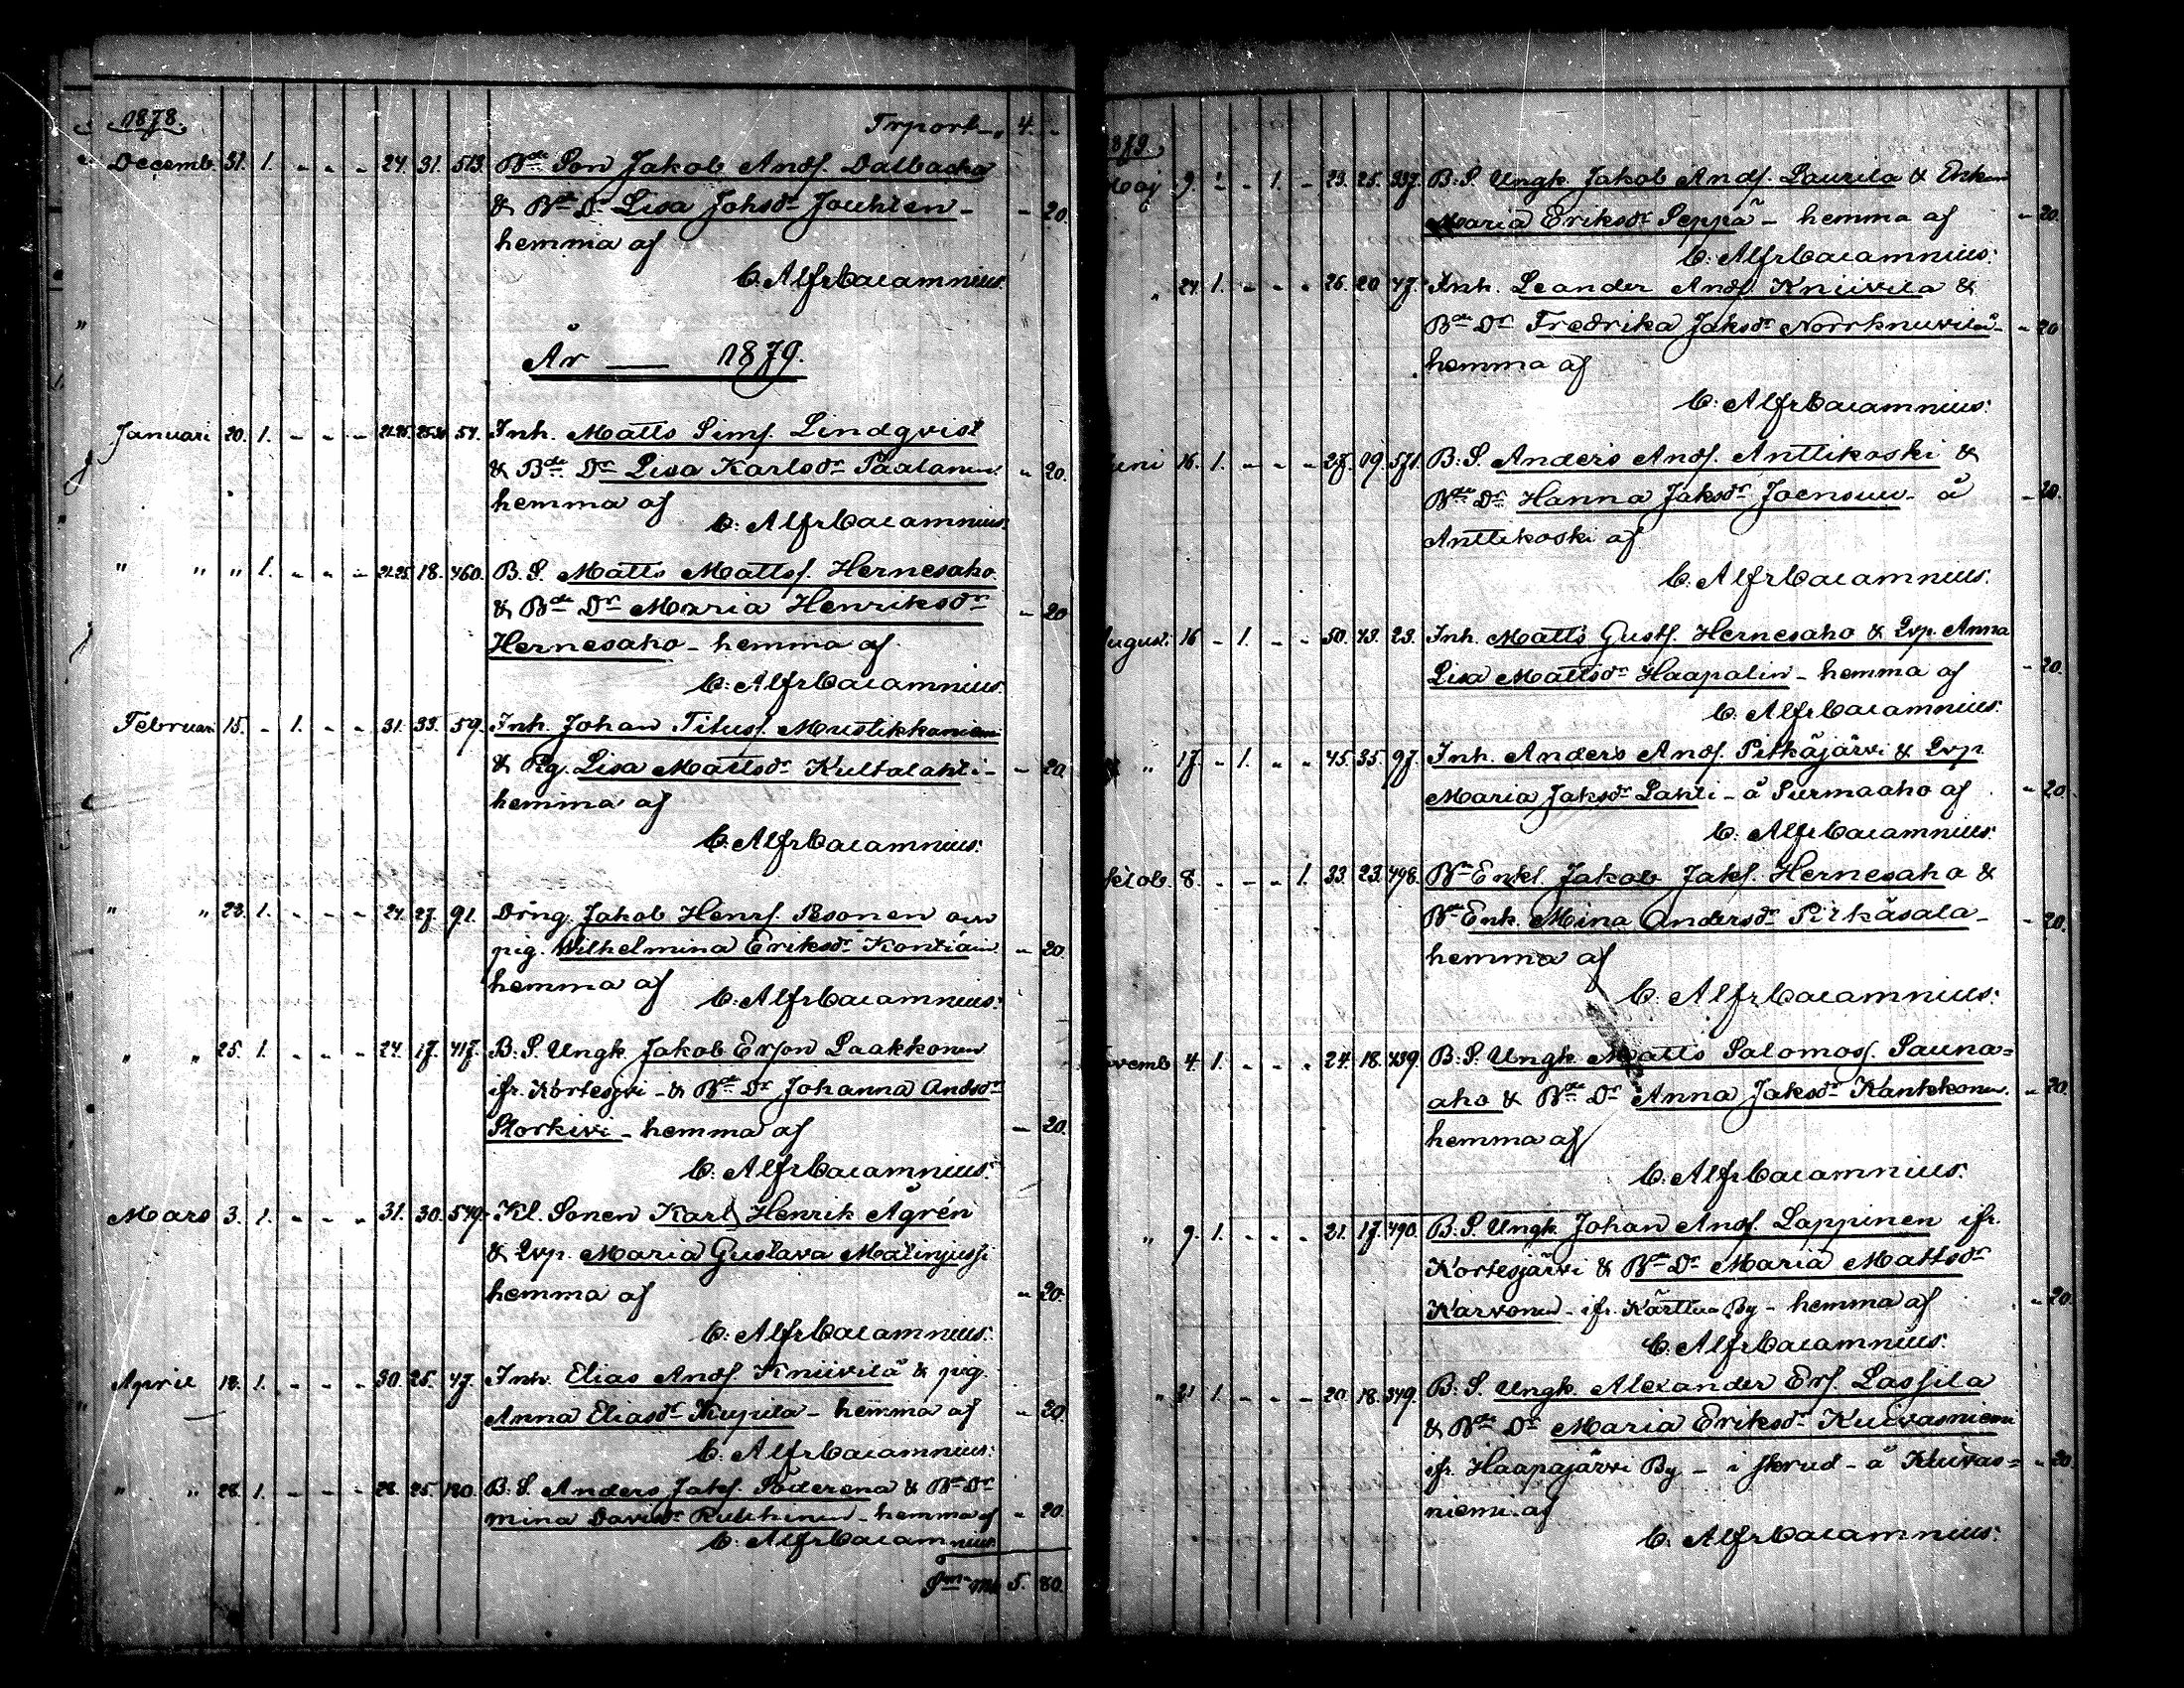 1878. Trport 4. -
Decemb. 31. 1. - - - 24. 31. 513. Bde Son Jakob Ands. Dalbacka
& Bde Dr Lisa Johsdr Jouhten - - 20.
hemma af
C. Alfr Cajamnius.
År — 1879.
Januari 20. 1. - - - 51. Inh. Matts Sims. Lindqvist
& Bde Dr Lisa Karlsdr Paalanen - 20.
hemma af
C. Alfr Cajamnius.
" " " 1. - - - 21.25. 18. 460. B. S. Matts Mattss. Hernesaho
& Bde Dr Maria Henriksdr - 20
Hernesaho - hemma af
C. Alfr Cajamnius.
Februari 15. - 1. - - 31. 33. 59. Inh. Johan Tituss. Mustikkaniemi
& Pig. Lisa Mattsdr Kultalahti - - 20.
hemma af
C. Alfr Cajamnius.
" " 23. 1. - - - 24. 27. 91. Dräng Jakob Henrs. Pesonen och
pig. Wilhelmina Eriksdr Kontiain - 20.
hemma af
C. Alfr Cajamnius.
" " 25. 1. - - - 24. 17. 417. B. S. Ungk. Jakob Erson Laakkonen
ifr. Kortesjrvi - & Bde Dr Johanna Andsdr
Storkivi - hemma af - 20.
C. Alfr Cajamnius.
Mars 3. 1. - - - 31. 30. 549. Kl. Sonen Karl Henrik Ågrén
& Qvp. Maria Gustava Matinjussi
hemma af - 20.
C. Alfr Cajamnius.
April 18. 1. - - - 30. 25. 47. Inh. Elias Ands. Kniivilä & pig.
Anna Eliasdr Kujula - hemma af - 20.
C. Alfr Cajamnius.
" " 28. 1. - - - 28. 25. 180. B. S. Anders Jaks. Söderena & Bde Dr
Mina Davidsdr Ruuhinen - hemma af - 20.
C. Alfr Cajamnius.
Sma Mk 5. 80.
1879.
Maj 9. - - 1. - 29. 25. 337. B. S. Ungk. Jakob Ands. Laurila & Enkan
Maria Eriksdr Seppä - hemma af - 20.
C. Alfr Cajamnius.
" 24. 1. - - - 26. 20. 47. Inh. Leander Ands. Kniivila &
Bde Dr Fredrika Jaksdr Norrknivilä - - 20
hemma af
C. Alfr Cajamnius.
Juni 16. 1. - - - 27. 19. 571. B. S. Anders Ands. Anttikoski &
Bde Dr Hanna Jaksdr Joensuu - å - 20.
Anttikoski af
C. Alfr Cajamnius.
August. 16 - 1. - - 50. 43. 23. Inh. Matts Gusts. Hernesaho & Qvp. Anna
Lisa Mattsdr Haapalin - hemma af - 20.
C. Alfr Cajamnius.
" 17. - 1. - - 45. 35. 97. Inh. Anders Ands. Pitkäjärvi & Qvp
Maria Jaksdr Lahti - å Surmaaho af - 20.
C. Alfr Cajamnius.
Octob. 8. - - - 1. 33. 23. 498. Bde Enkl. Jakob Jaks. Hernesaho &
Bde Enk. Mina Andersdr Pitkäsala - - 20.
hemma af
C. Alfr Cajamnius.
Novemb. 4. 1. - - - 24. 18. 439. B. S. Ungk. Matts Salomos. Sauna=
aho & Bde Dr Anna Jaksdr Kankkonen. - 20.
hemma af
C. Alfr Cajamnius.
" 9. 1. - - - 21. 17. 490. B. S. Ungk. Johan Ands. Lappinen ifr.
Kortesjärvi & Bde Dr Maria Mattsdr
Karvonen - ifr. Kärttua By - hemma af - 20
C. Alfr Cajamnius.
" 21 1. - - - 20. 18. 349. B. S. Ungk. Alexander Ers. Lassila
& Bde Dr Maria Eriksdr Kuivasniemi
ifr. Haapajärvi By - i skrud - å Kuivas= - 20.
niemi af
C. Alfr Cajamnius.